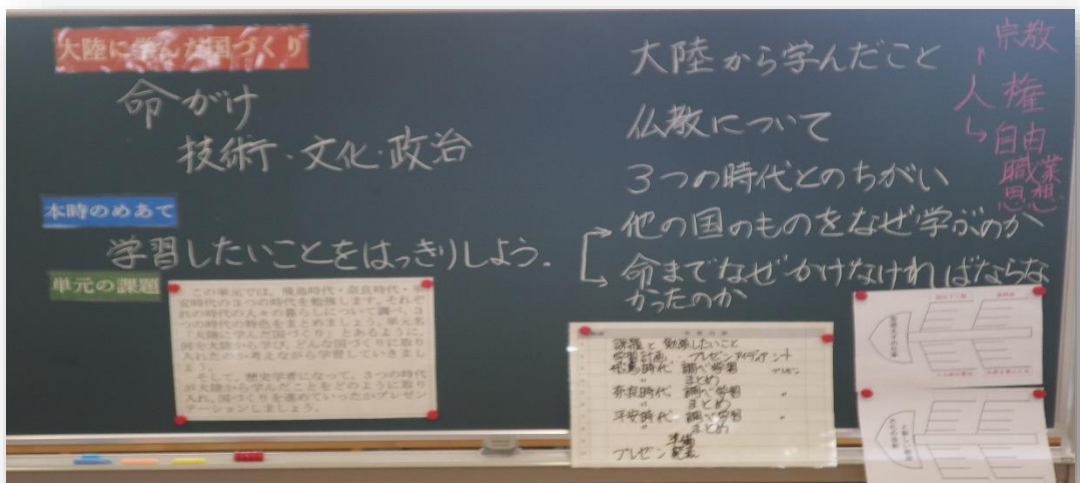 大陸に学んだ国づくり
命がけ
技術・文化・政治
本時のめあて
学習したいことをはっきりしよう.
単元の課題
この単元では、飛鳥時代・奈良時代・平
安時代の3つの時代を勉強します。それぞ
れの時代の人々の暮らしについて調べ、3
つの時代の特色をまとめましょう。単元名
「大陸に学んだ国づくり」とあるように、
何を大陸から学び、どんな国づくりに取り
入れたのか考えながら学習していきまし
ょう。
そして、歴史学者になって、3つの時代
が大陸から学んだことをどのように取り
入れ、国づくりを進めていったかプレゼン
テーションしましょう。
大陸から学んだこと
仏教について
3つの時代とのちがい
他の国のものをなぜ学ぶのか
命までなぜかけなければならな
かったのか
宗教
人権
自由
職業
思想
課題と勉強したいこと
学習計画
飛鳥時代 調べ学習
〃 まとめ
奈良時代 調べ学習 〃
〃 まとめ
平安時代 調べ学習 〃
〃 まとめ
準備
プレゼン発表